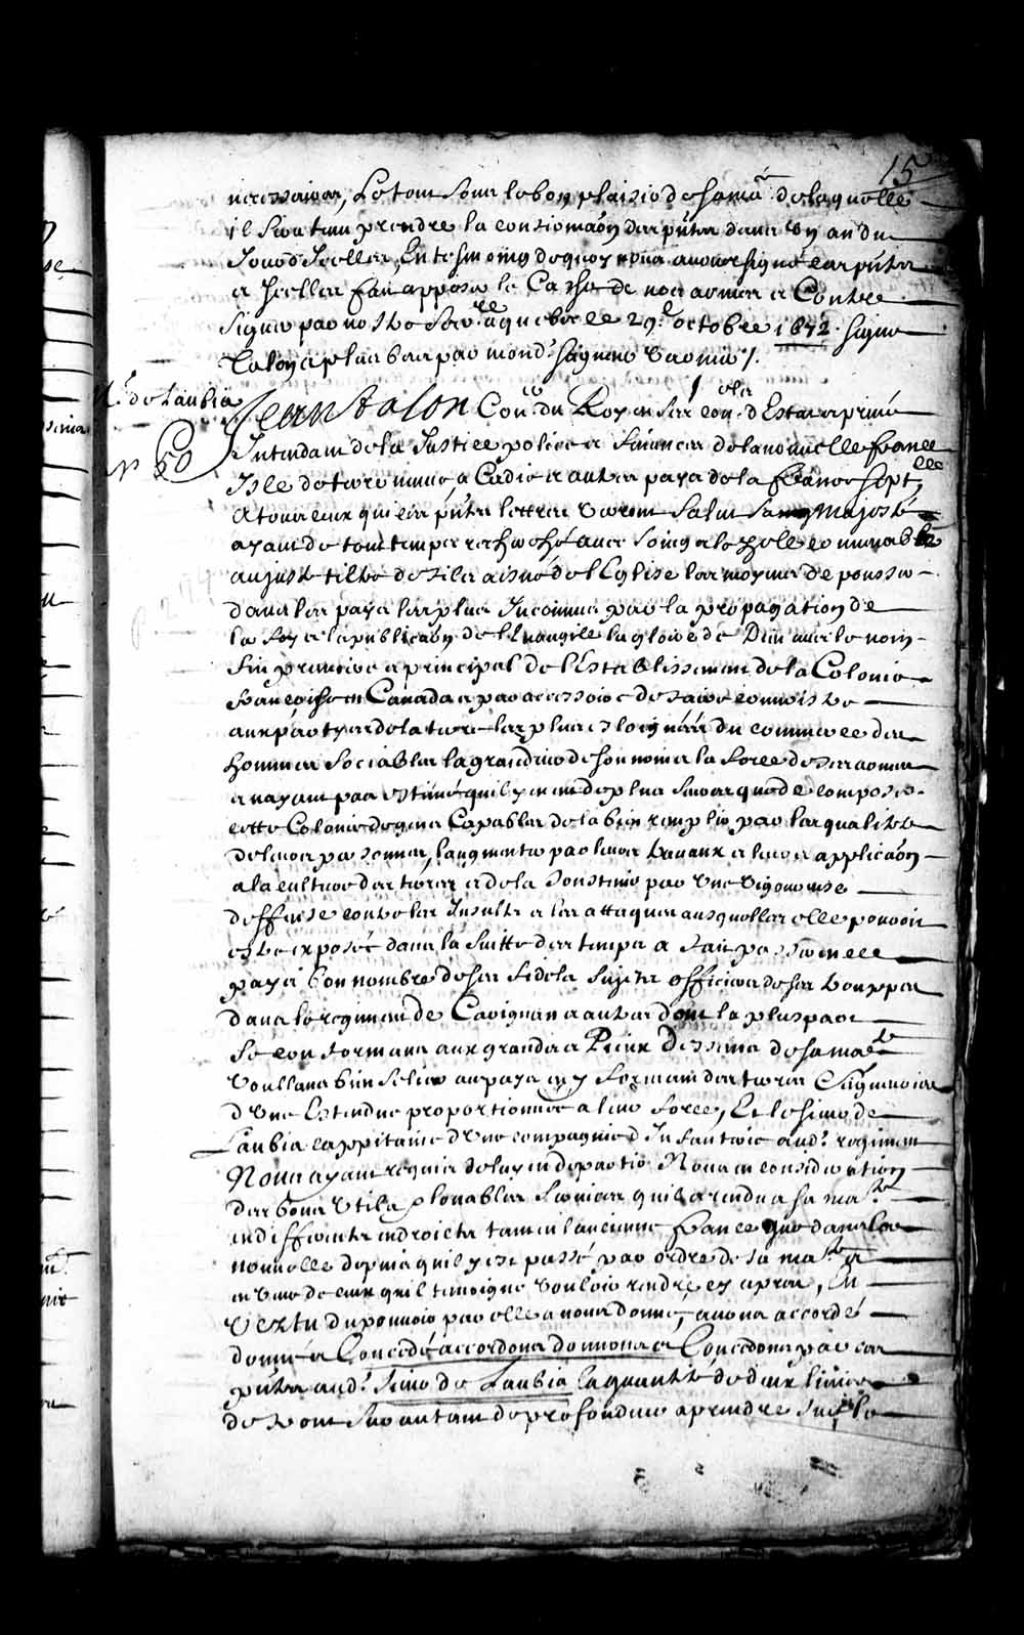 15
necessaires, Le tout sous le bon plaisir de sa ma.té de laquelle
il sera tenu prendre la confirmaôn des pñtes dans un an du
Jour d'Icelles, En tesmoing de quoy nous avons signé ces pñtes
a Icelles fait apposer le Cachet de nos armes et Contre
signer par nostre Secr.re a quebec le 29.e octobre 1672. signé
Talon et plus bas par mond.t seigneur Varnier /.
M.r de Laubia
N.o 50
Jean Talon Con.er du Roy en ses con.ls d'Estat et privé
Intendant de la Justice police et finances de la nouvelle france
Isle de terre neuve, a Cadie et autres pays de la france sept.lle
A tous ceux qui ces pñtes lettres verront Salut Sa Majesté
ayant de tout temps recherché avec soing et le zelle convenable
au juste tiltre de fils aisné de l'Eglise les moyens de pousser
dans les pays les plus Inconnus par la propagation de
la foy et la publicaôn de l'Evangile la gloire de Dieu avec le nom
fin premiere et principal de l'Establissement de la Colonie
francoise en Canada et par accessoire de faire connoistre
aux partyes de la terre les plus esloignées du commerce des
hommes sociables la grandeur de son nom et la force de ses armes
et n'ayant pas estimé qu'il y en eut de plus seures que de composer
cette Colonie de gens Capables de la bien remplir par les qualitez
de leurs personnes, l'augmenter par leurs travaux et leur applicaôn
a la culture des terres et de la soustenir par une vigoureuse
deffense contre les Insultes et les attaques ausquelles elle pouvoit
estre exposée dans la suitte des temps a fait passer en ce
pays bon nombre de ses fidels sujets officiers de ses trouppes
dans le regiment de Carignan et autres dont la pluspart
se conformans aux grands et Pieux Desseins de sa ma.té
voullans bien se lier au pays en y formant des terres Seigneuriales
d'une Estendue proportionnée a leur force, Et le sieur de
Laubia cappitaine d'une compagnie d'Infanterie aud.t regiment
Nous ayant requis de luy en departir Nous en consideration
des bons utils et louables services qu'il a rendu a sa ma.té
en differents endroicts tant en l'ancienne france que dans la
nouvelle depuis qu'il y est passé par ordre de sa ma.té et
en veue de ceux qu'il temoigne vouloir rendre cy apres, En
Vertu du pouvoir par elle a nous donné, avons accordé
donné et Concedé accordons donnons et Concedons par ces
pñtes aud.t sieur de Laubia la quantité de deux lieues
de front sur autant de profondeur a prendre sur le